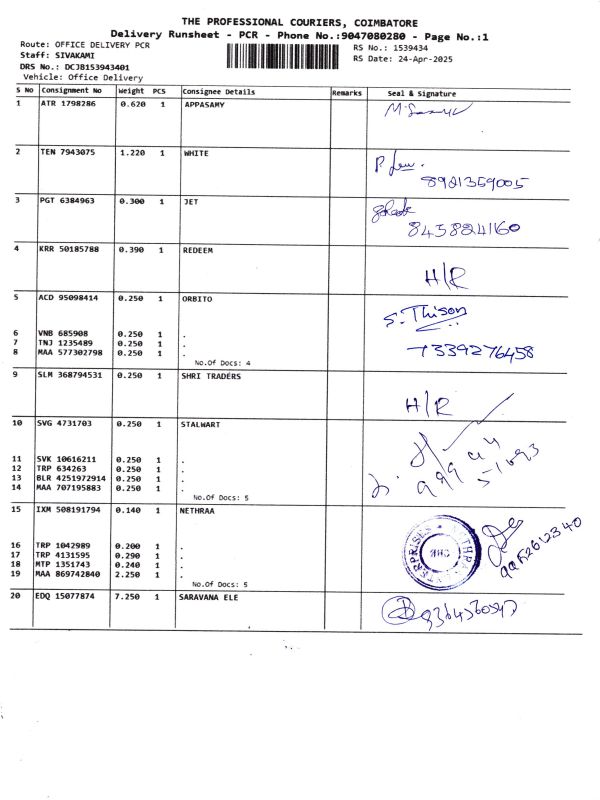 THE PROFESSIONAL COURIERS, COIMBATORE
Delivery Runsheet - PCR - Phone No.:9047080280 - Page No.:1
Route: OFFICE DELIVERY PCR
RS No.: 1539434
Staff: SIVAKAMI
RS Date: 24-Apr-2025
DRS No.: DCJB153943401
Vehicle: Office Delivery
S No Consignment No Weight PCS Consignee Details Remarks Seal & Signature
1 ATR 1798286 0.620 1 APPASAMY
2 TEN 7943075 1.220 1 WHITE
8921359005
3 PGT 6384963 0.300 1 JET
8458824160
4 KRR 50185788 0.390 1 REDEEM
H/R
5 ACD 95098414 0.250 1 ORBITO
S. Thison
6 VNB 685908 0.250 1 .
7 TNJ 1235489 0.250 1 .
8 MAA 577302798 0.250 1 .
7339276458
No.Of Docs: 4
9 SLM 368794531 0.250 1 SHRI TRADERS
H/R
10 SVG 4731703 0.250 1 STALWART
11 SVK 10616211 0.250 1 .
12 TRP 634263 0.250 1 .
13 BLR 4251972914 0.250 1 .
14 MAA 707195883 0.250 1 .
No.Of Docs: 5
15 IXM 508191794 0.140 1 NETHRAA
16 TRP 1042989 0.200 1 .
17 TRP 4131595 0.290 1 .
18 MTP 1351743 0.240 1 .
19 MAA 869742840 2.250 1 .
No.Of Docs: 5
20 EDQ 15077874 7.250 1 SARAVANA ELE